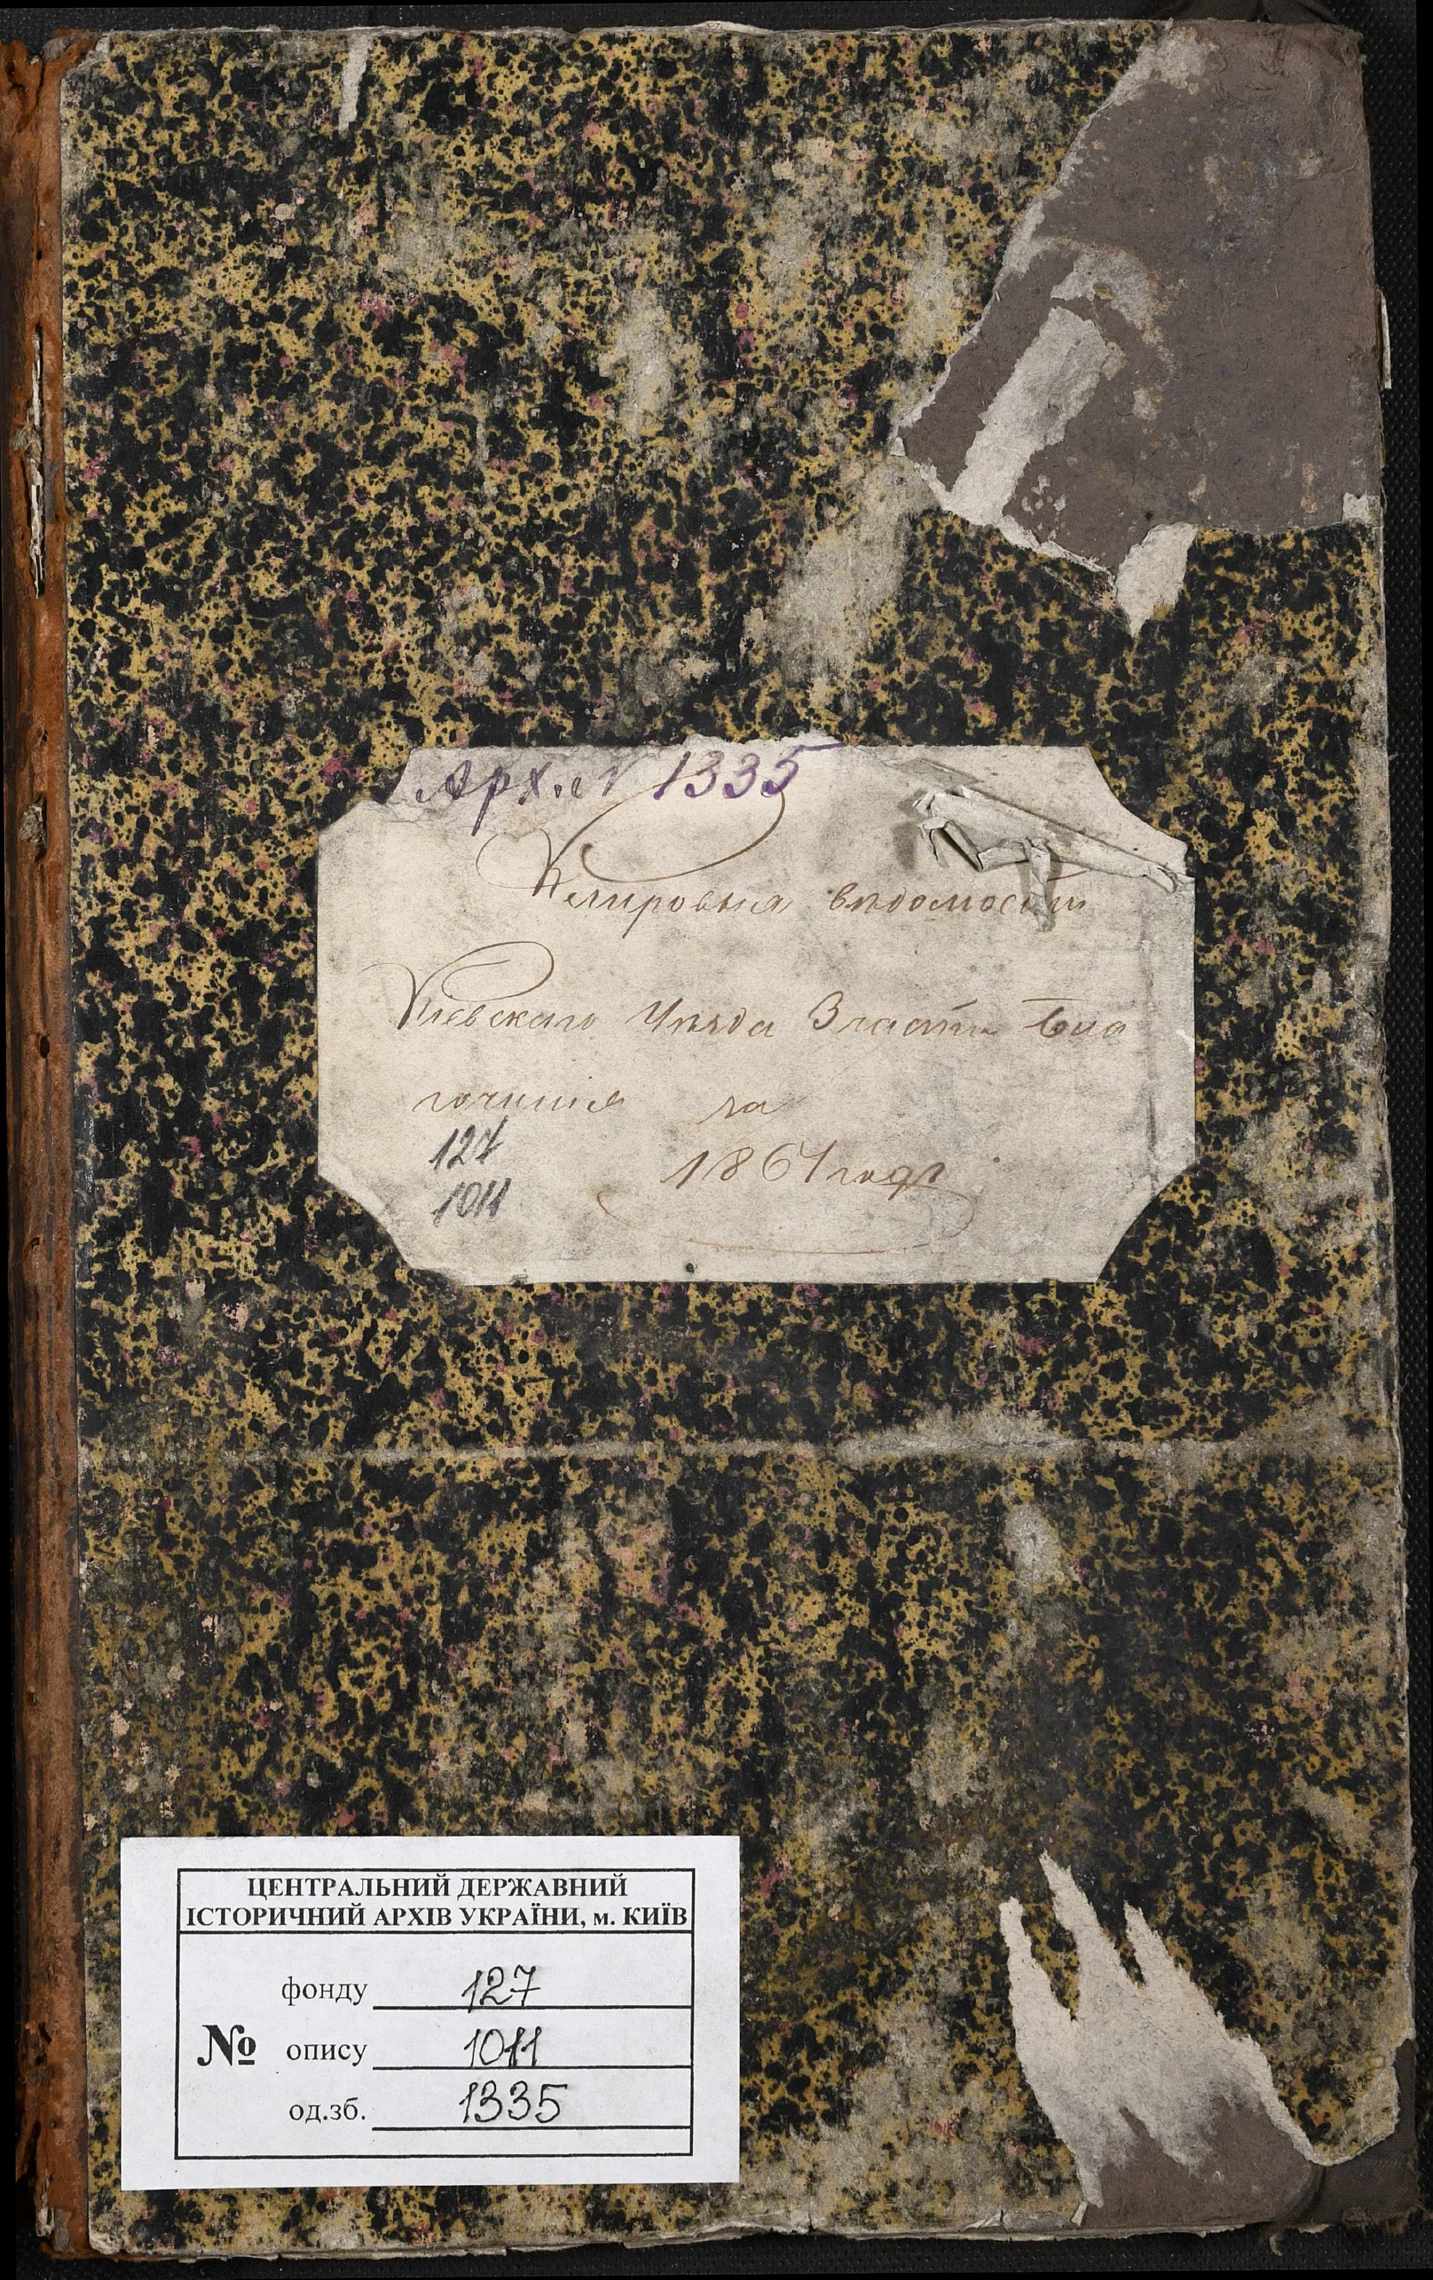 Арх. № 1335
Клировыя вѣдомости
Кіевскаго Уѣзда 3 части Бла
гочинія за
127
1011
1864 годъ
ЦЕНТРАЛЬНИЙ ДЕРЖАВНИЙ
ІСТОРИЧНИЙ АРХІВ УКРАЇНИ, м. КИЇВ
фонду 127
№ опису 1011
од.зб. 1335